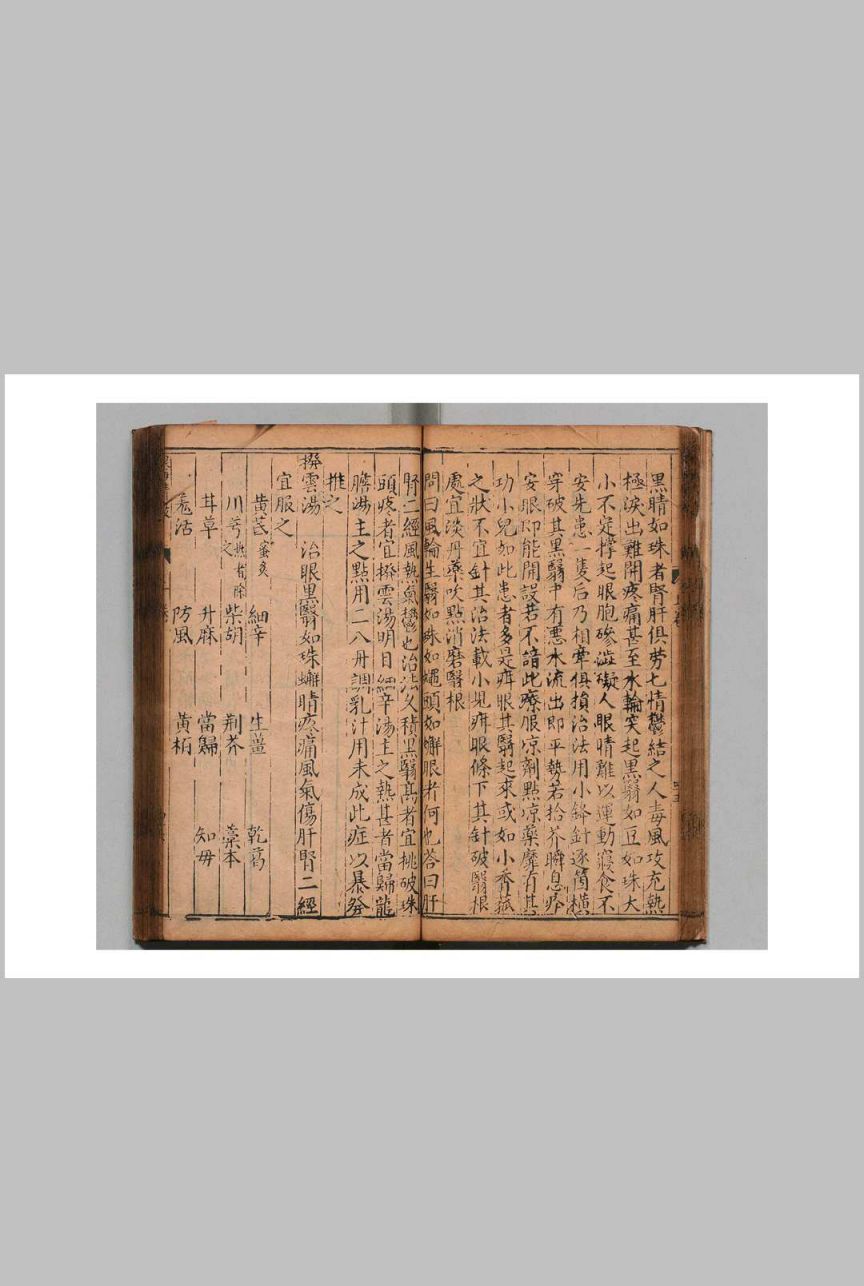 黑睛如珠者腎肝俱勞七情鬱結之人毒風攻充熱
極淚出難開疼痛甚至水輪突起黑翳如豆如珠大
小不定撑起眼胞磣澁礙人眼睛難以運動寢食不
安先患一隻后乃相牽俱損治法用小鋒針逐箇橫
穿破其黑翳中有惡水流出即平勢若拾芥瞬息疼
安眼即能開設若不諳此療服凉劑點凉藥靡有其
功小兒如此患者多是疳眼其翳起來或如小香菰
之狀不宜針其治法載小兒疳眼條下其針破翳根
處宜淡丹藥吹點消磨翳根
問曰風輪生翳如珠如蠅頭如蠏眼者何也荅曰肝
腎二經風熱氣鬱也治法久積黑翳高者宜挑破珠
頭疼者宜撥雲湯明目細辛湯主之熱甚者當歸龍
膽湯主之點用二八丹調乳汁用未成此症以暴發
推之
撥雲湯 治眼黑翳如珠蠏睛疼痛風氣傷肝腎二經
宜服之
黃芪蜜炙 細辛 生薑 乾葛
川芎熱者除之 柴胡 荆芥 藁本
甘草 升麻 當歸 知母
羗活 防風 黃栢